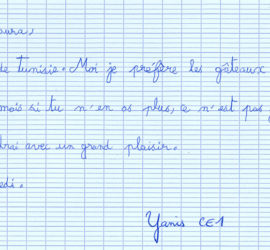 aura,
de Tunisie. Moi je préfère les gâteaux
mais si tu n'en as plus, ce n'est pas g
drai avec un grand plaisir.
edi.
Yanis CE1